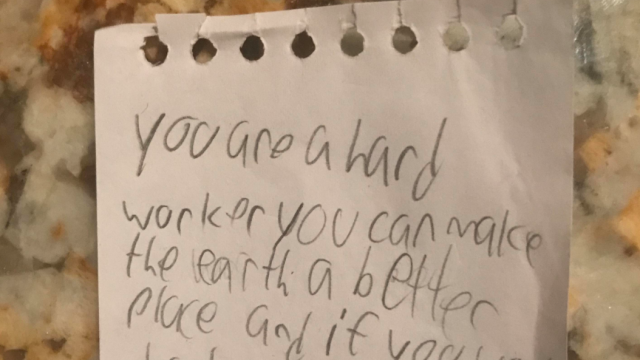 you are a hard
worker you can make
the earth a better
place and if you